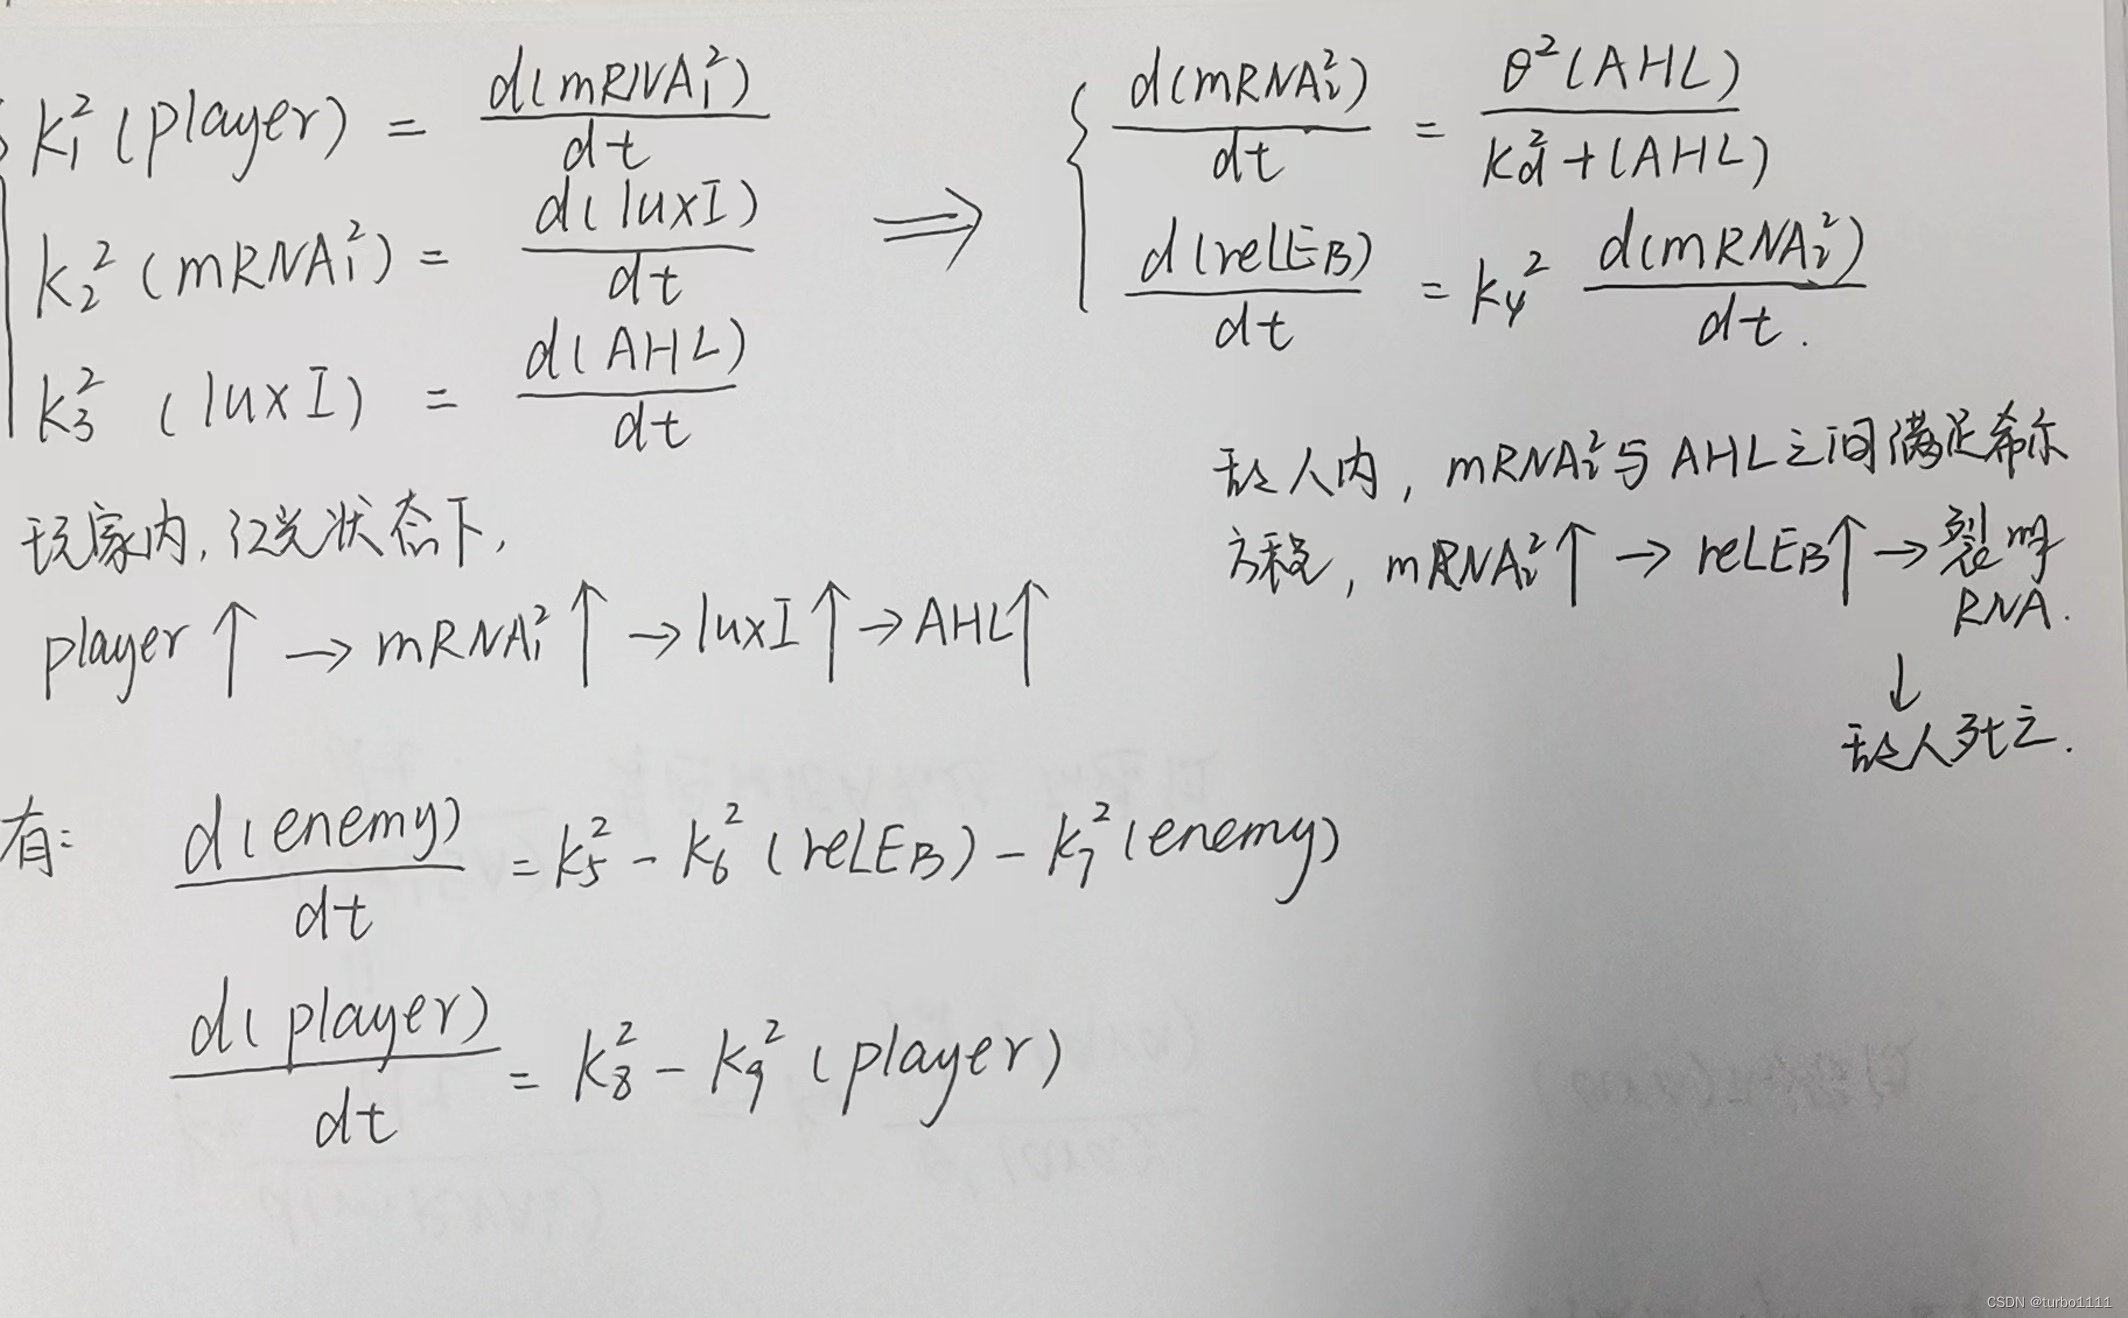 k₁²(player) = d(mRNA₁²)/dt
k₂²(mRNA₁²) = d(luxI)/dt
k₃²(luxI) = d(AHL)/dt
⇒
d(mRNA₂²)/dt = θ²(AHL)/(kd²+(AHL))
d(relEB)/dt = k₄² d(mRNA₂²)/dt.
玩家内,红光状态下,
player↑→mRNA₁²↑→luxI↑→AHL↑
敌人内,mRNA₂²与AHL之间满足希尔
方程,mRNA₂²↑→relEB↑→裂解
RNA.
↓
敌人死亡.
有:
d(enemy)/dt = k₅²-k₆²(relEB)-k₇²(enemy)
d(player)/dt = k₈²-k₉²(player)
CSDN @turbo1111